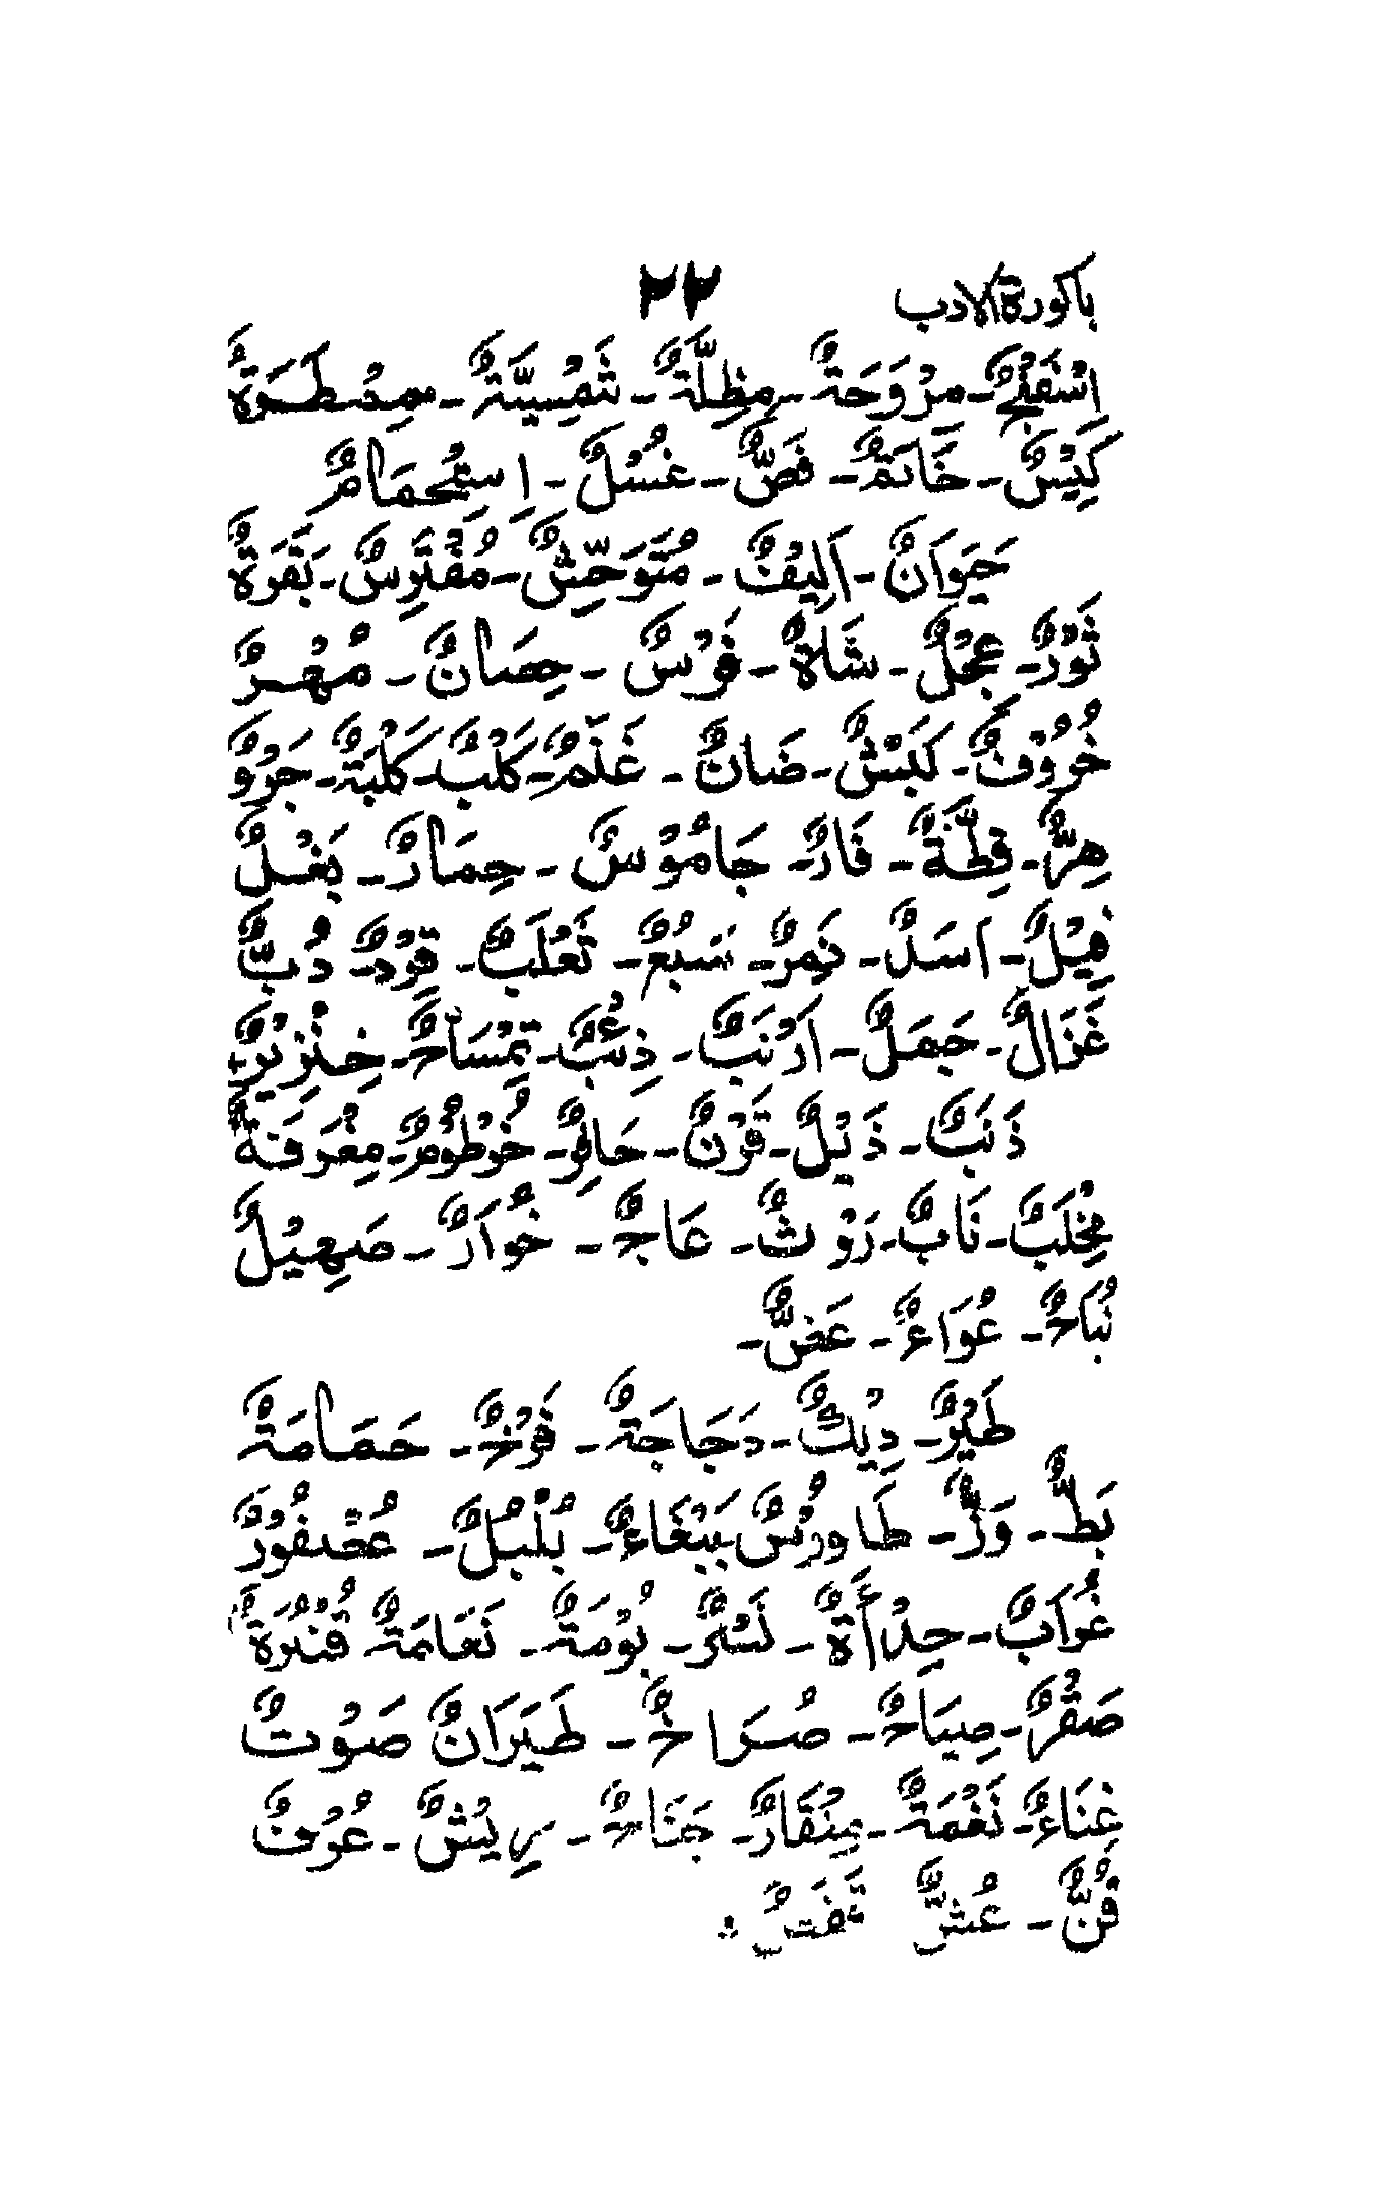 باكورة الادب ٢٢
اِسْفَنْجٌ - مِرْوَحَةٌ - مِظَلَّةٌ - شَمْسِيَّةٌ - مِمْطَرَةٌ
كِيْسٌ - خَاتَمٌ - فَصٌّ - غُسْلٌ - اِسْتِحْمَامٌ
حَيَوَانٌ - اَلِيْفٌ - مُتَوَحِّشٌ - مُفْتَرِسٌ - بَقَرَةٌ
ثَوْرٌ - عِجْلٌ - شَاةٌ - فَرْسٌ - حِصَانٌ - مُهْرٌ
خُرُوْفٌ - كَبْشٌ - ضَانٌ - غَنَمٌ - كَلْبٌ - كَلْبَةٌ - جَرْوٌ
هِرٌّ - قِطَّةٌ - فَارٌ - جَامُوْسٌ - حِمَارٌ - بَغْلٌ
فِيْلٌ - اَسَدٌ - نَمِرٌ - سَبُعٌ - ثَعْلَبٌ - قِرْدٌ - دُبٌّ
غَزَالٌ - جَمَلٌ - اَرْنَبٌ - ذِئْبٌ - تِمْسَاحٌ - خِنْزِيْرٌ
ذَنَبٌ - ذَيْلٌ - قَرْنٌ - حَافِرٌ - خُرْطُوْمٌ - مِعْرَفَةٌ
مِخْلَبٌ - نَابٌ - رَوْثٌ - عَاجٌ - خُوَارٌ - صَهِيْلٌ
نُبَاحٌ - عُوَاءٌ - عَضٌّ -
طَيْرٌ - دِيْكٌ - دَجَاجَةٌ - فَرْخٌ - حَمَامَةٌ
بَطٌّ - وَزٌّ - طَاوُسٌ بَبْغَاءٌ - بُلْبُلٌ - عُصْفُوْرٌ
غُرَابٌ - حِدْأَةٌ - نَسْرٌ - بُوْمَةٌ - نَعَامَةٌ قُنْبُرَةٌ
صَقْرٌ - صِيَاحٌ - صُرَاخٌ - طَيَرَانٌ صَوْتٌ
غِنَاءٌ - نَغْمَةٌ - مِنْقَارٌ - جَنَاحٌ - رِيْشٌ - عُرْفٌ
قُنٌّ - عُشٌّ قَفَصٌ